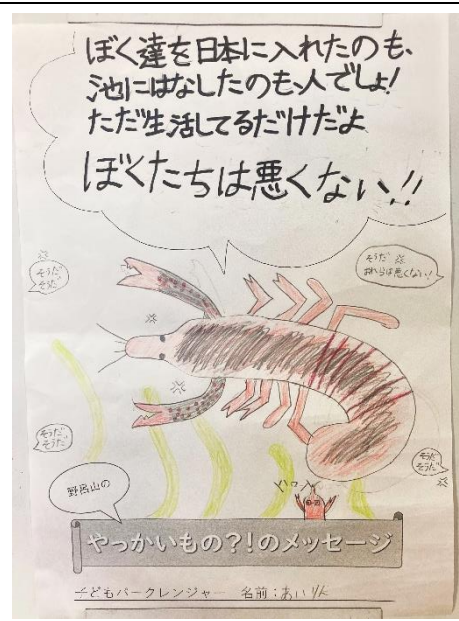 ぼく達を日本に入れたのも、
池にはなしたのも、人でしょ!
ただ生活してるだけだよ
ぼくたちは悪くない!!
そうだ
そうだ
そうだ
おれらは悪くない!
そうだ
そうだ
そうだ
そうだ
ハロー
野呂山の
やっかいもの?!のメッセージ
子どもパークレンジャー 名前:あいりん